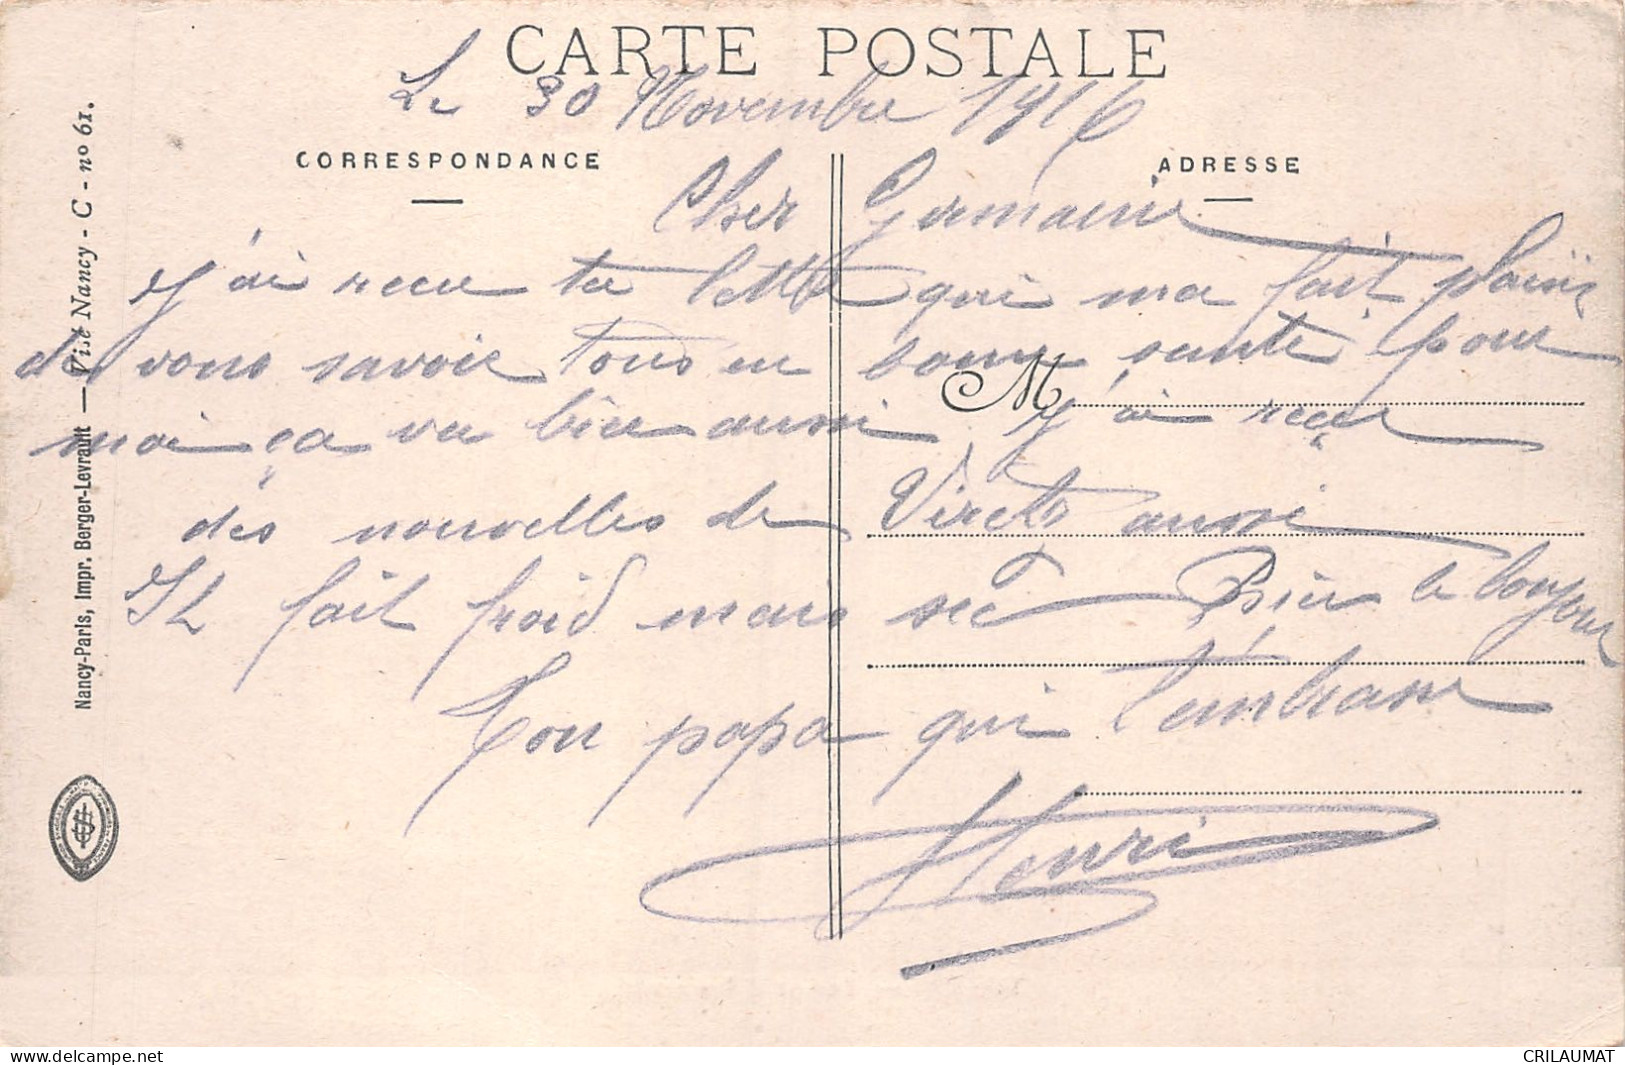 CARTE POSTALE
Le 30 Novembre 1916
CORRESPONDANCE
ADRESSE
Cher Germaine
J'ai recu ta lettre qui ma fait plaisir
de vous savoir tous en bonne santé pour
M
moi ça va bien aussi J'ai reçu
des nouvelles de aussi
Il fait froid mais sec Bien le bonjour
Ton papa qui t'embrasse
Henri
Nancy-Paris, Impr. Berger-Levrault — Visé Nancy - C - nº 61.
CRILAUMAT